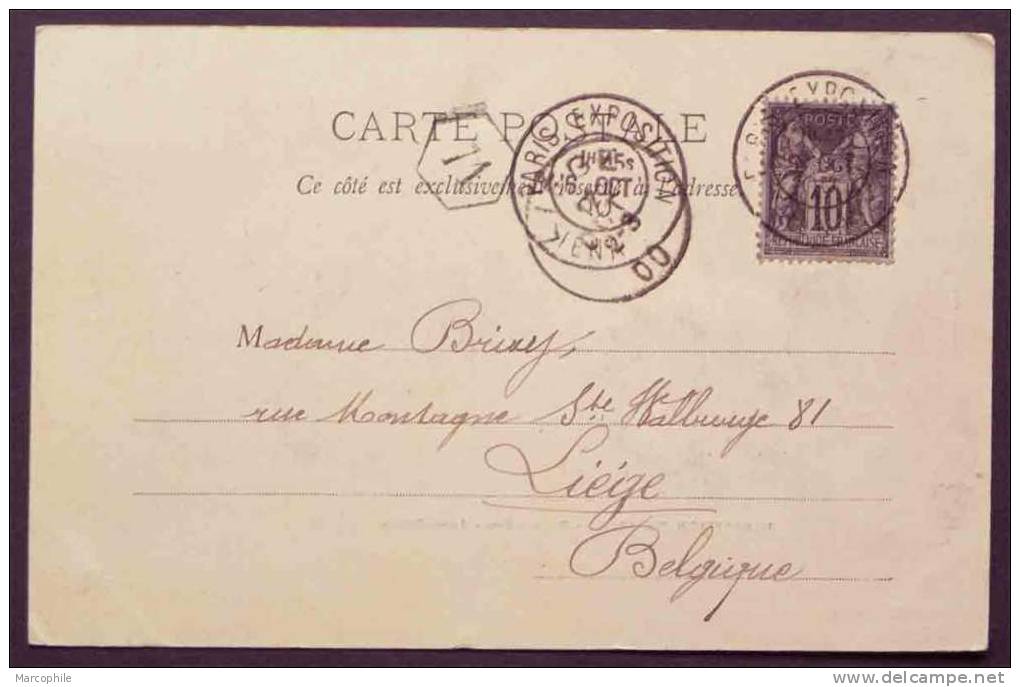 CARTE POSTALE
Ce côté est exclusivement réservé à l'adresse
PARIS EXPOSITION
OCT
00
POSTE
10
Madame Brixey,
rue Montagne Ste Walburge 81
Liéige
Belgique
Marcophile
delcampe.net